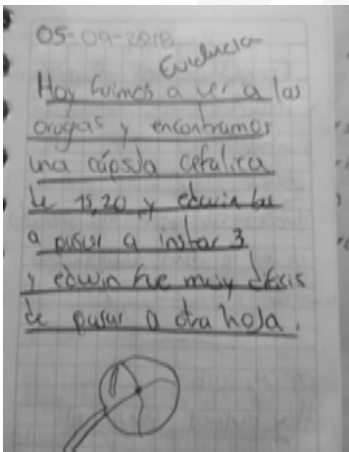 05-09-2018
Evidencia
Hoy fuimos a ver a las
orugas y encontramos
una cápsula cefalica
de 15,20 y edwin
a pasar a instar 3
y edwin fue muy dificis
de pasar a otra hoja.